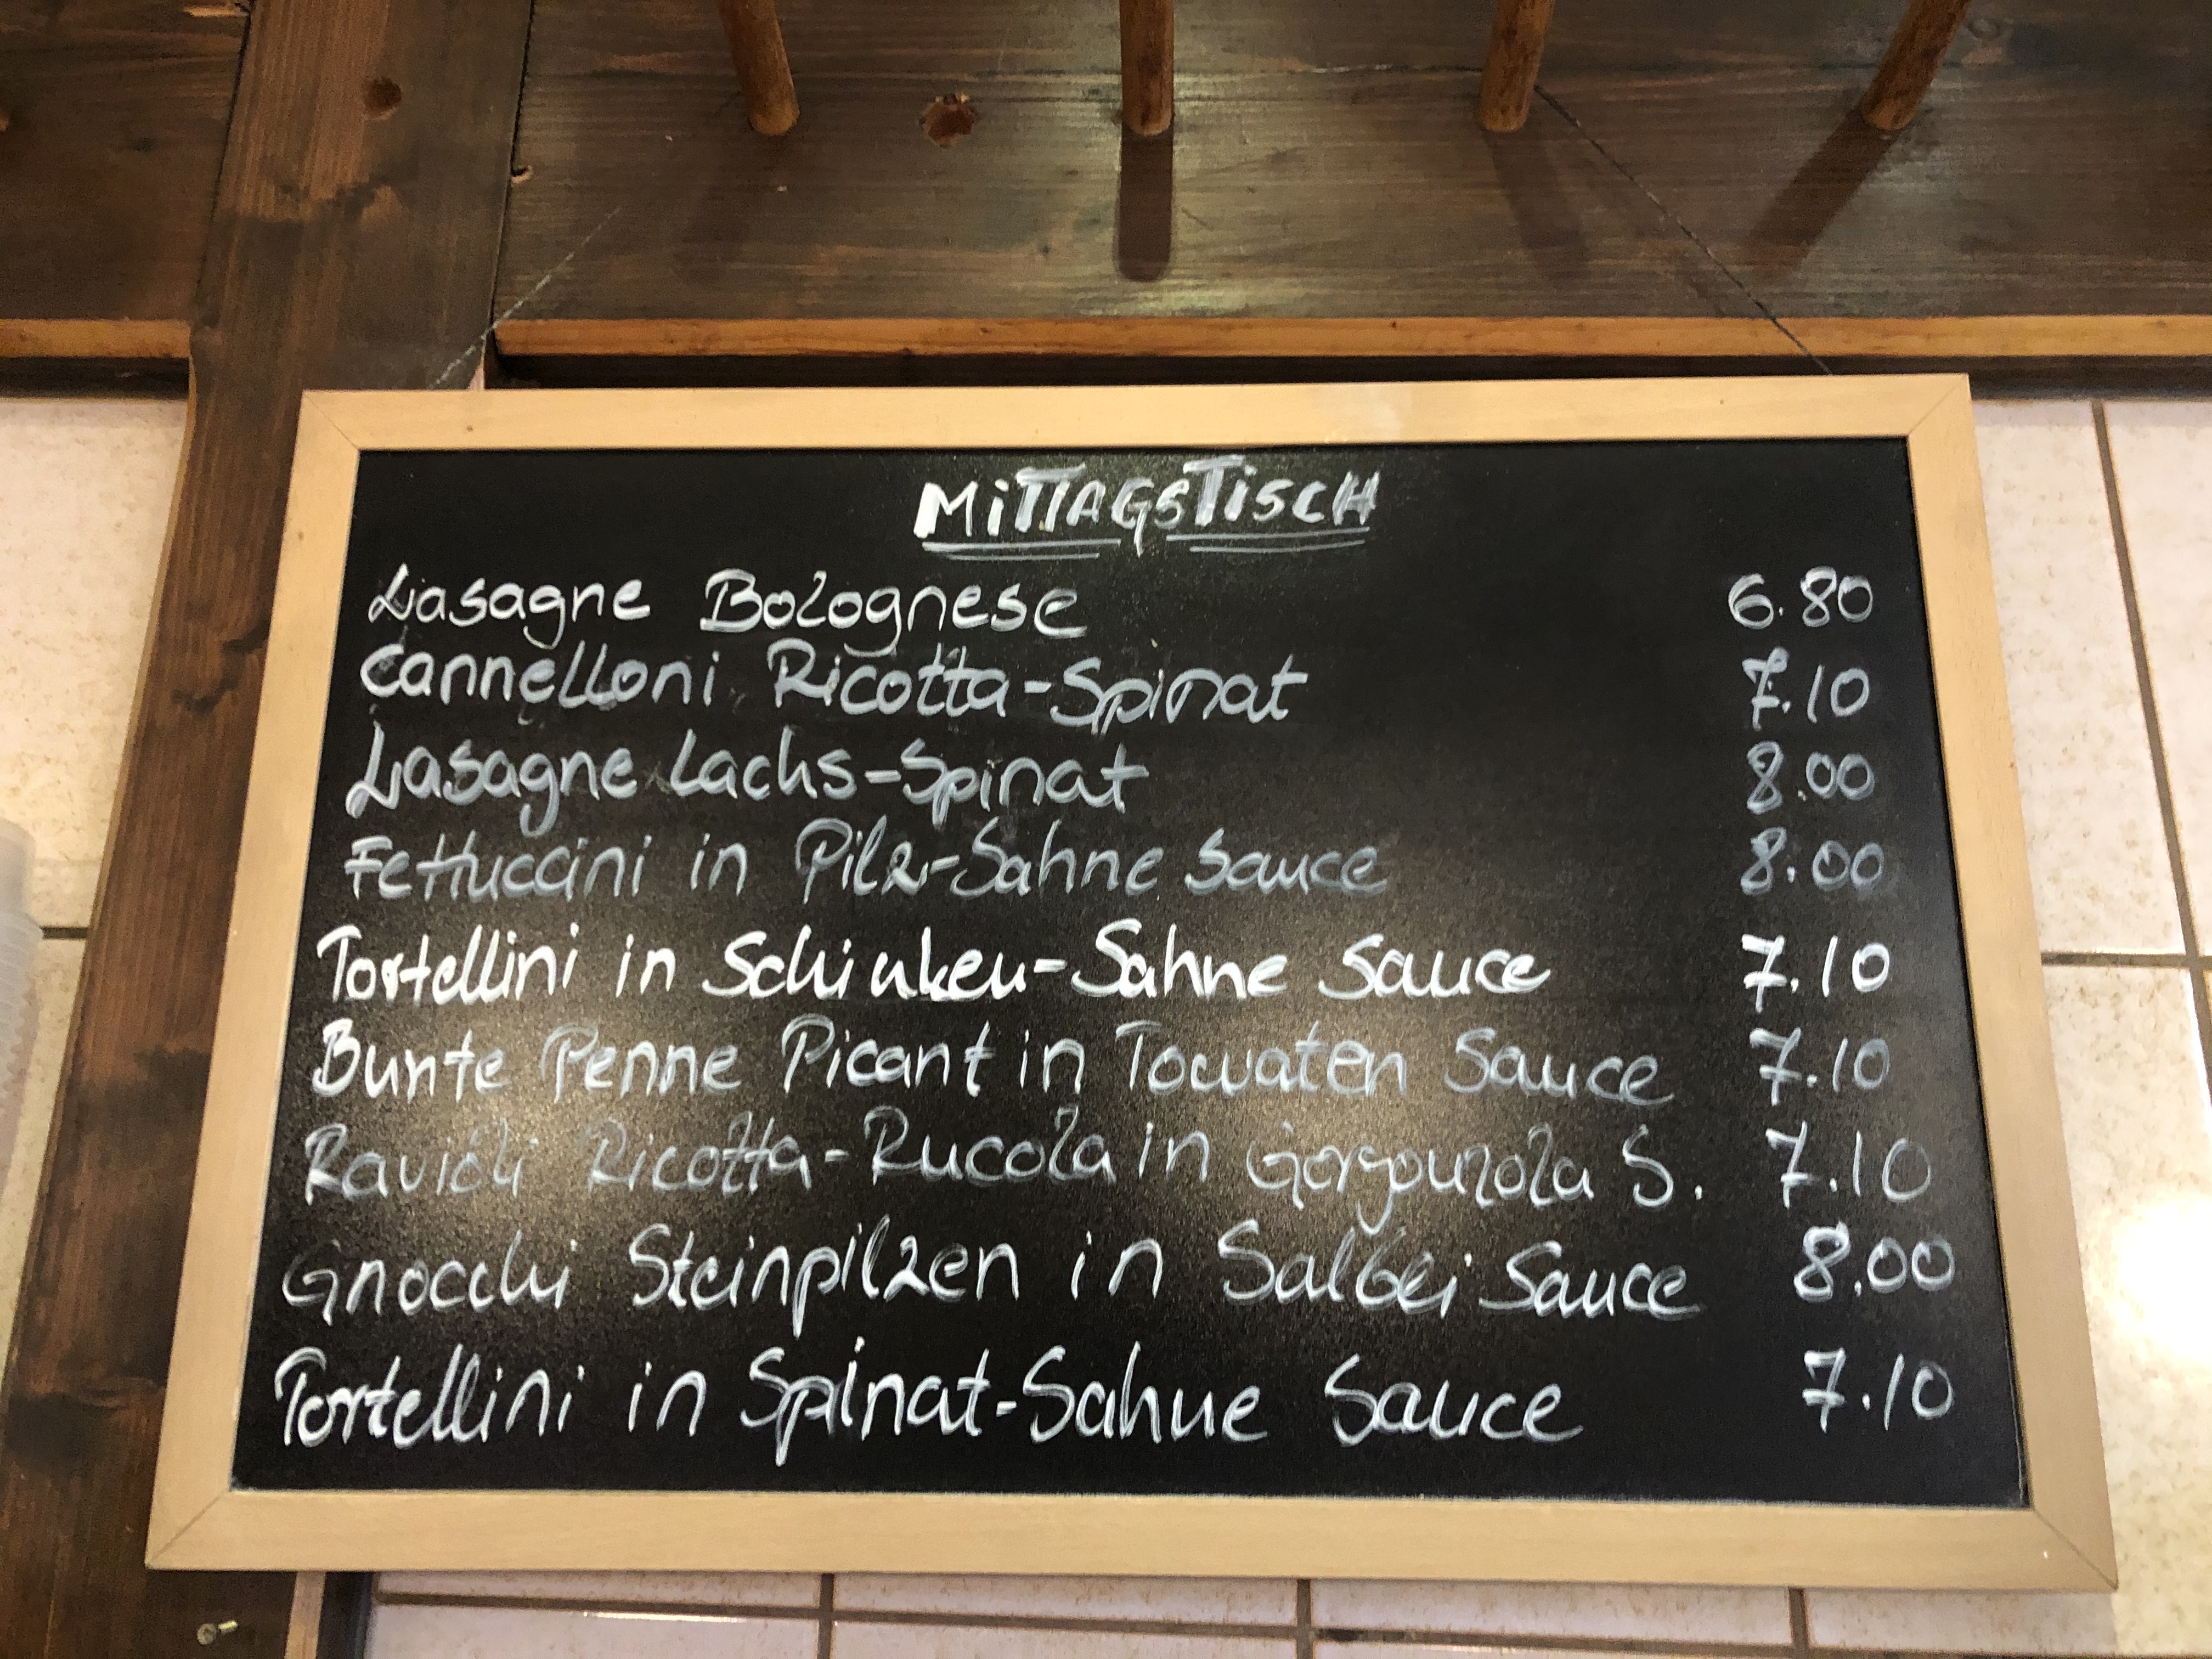 MiTTAGSTiSCH
Lasagne Bolognese 6.80
Cannelloni Ricotta-Spinat 7.10
Lasagne Lachs-Spinat 8.00
Fettuccini in Pilz-Sahne Sauce 8.00
Tortellini in Schinken-Sahne Sauce 7.10
Bunte Penne Picant in Tomaten Sauce 7.10
Ravioli Ricotta-Rucola in Gorgonzola S. 7.10
Gnocchi Steinpilzen in Salbei Sauce 8.00
Tortellini in Spinat-Sahne Sauce 7.10